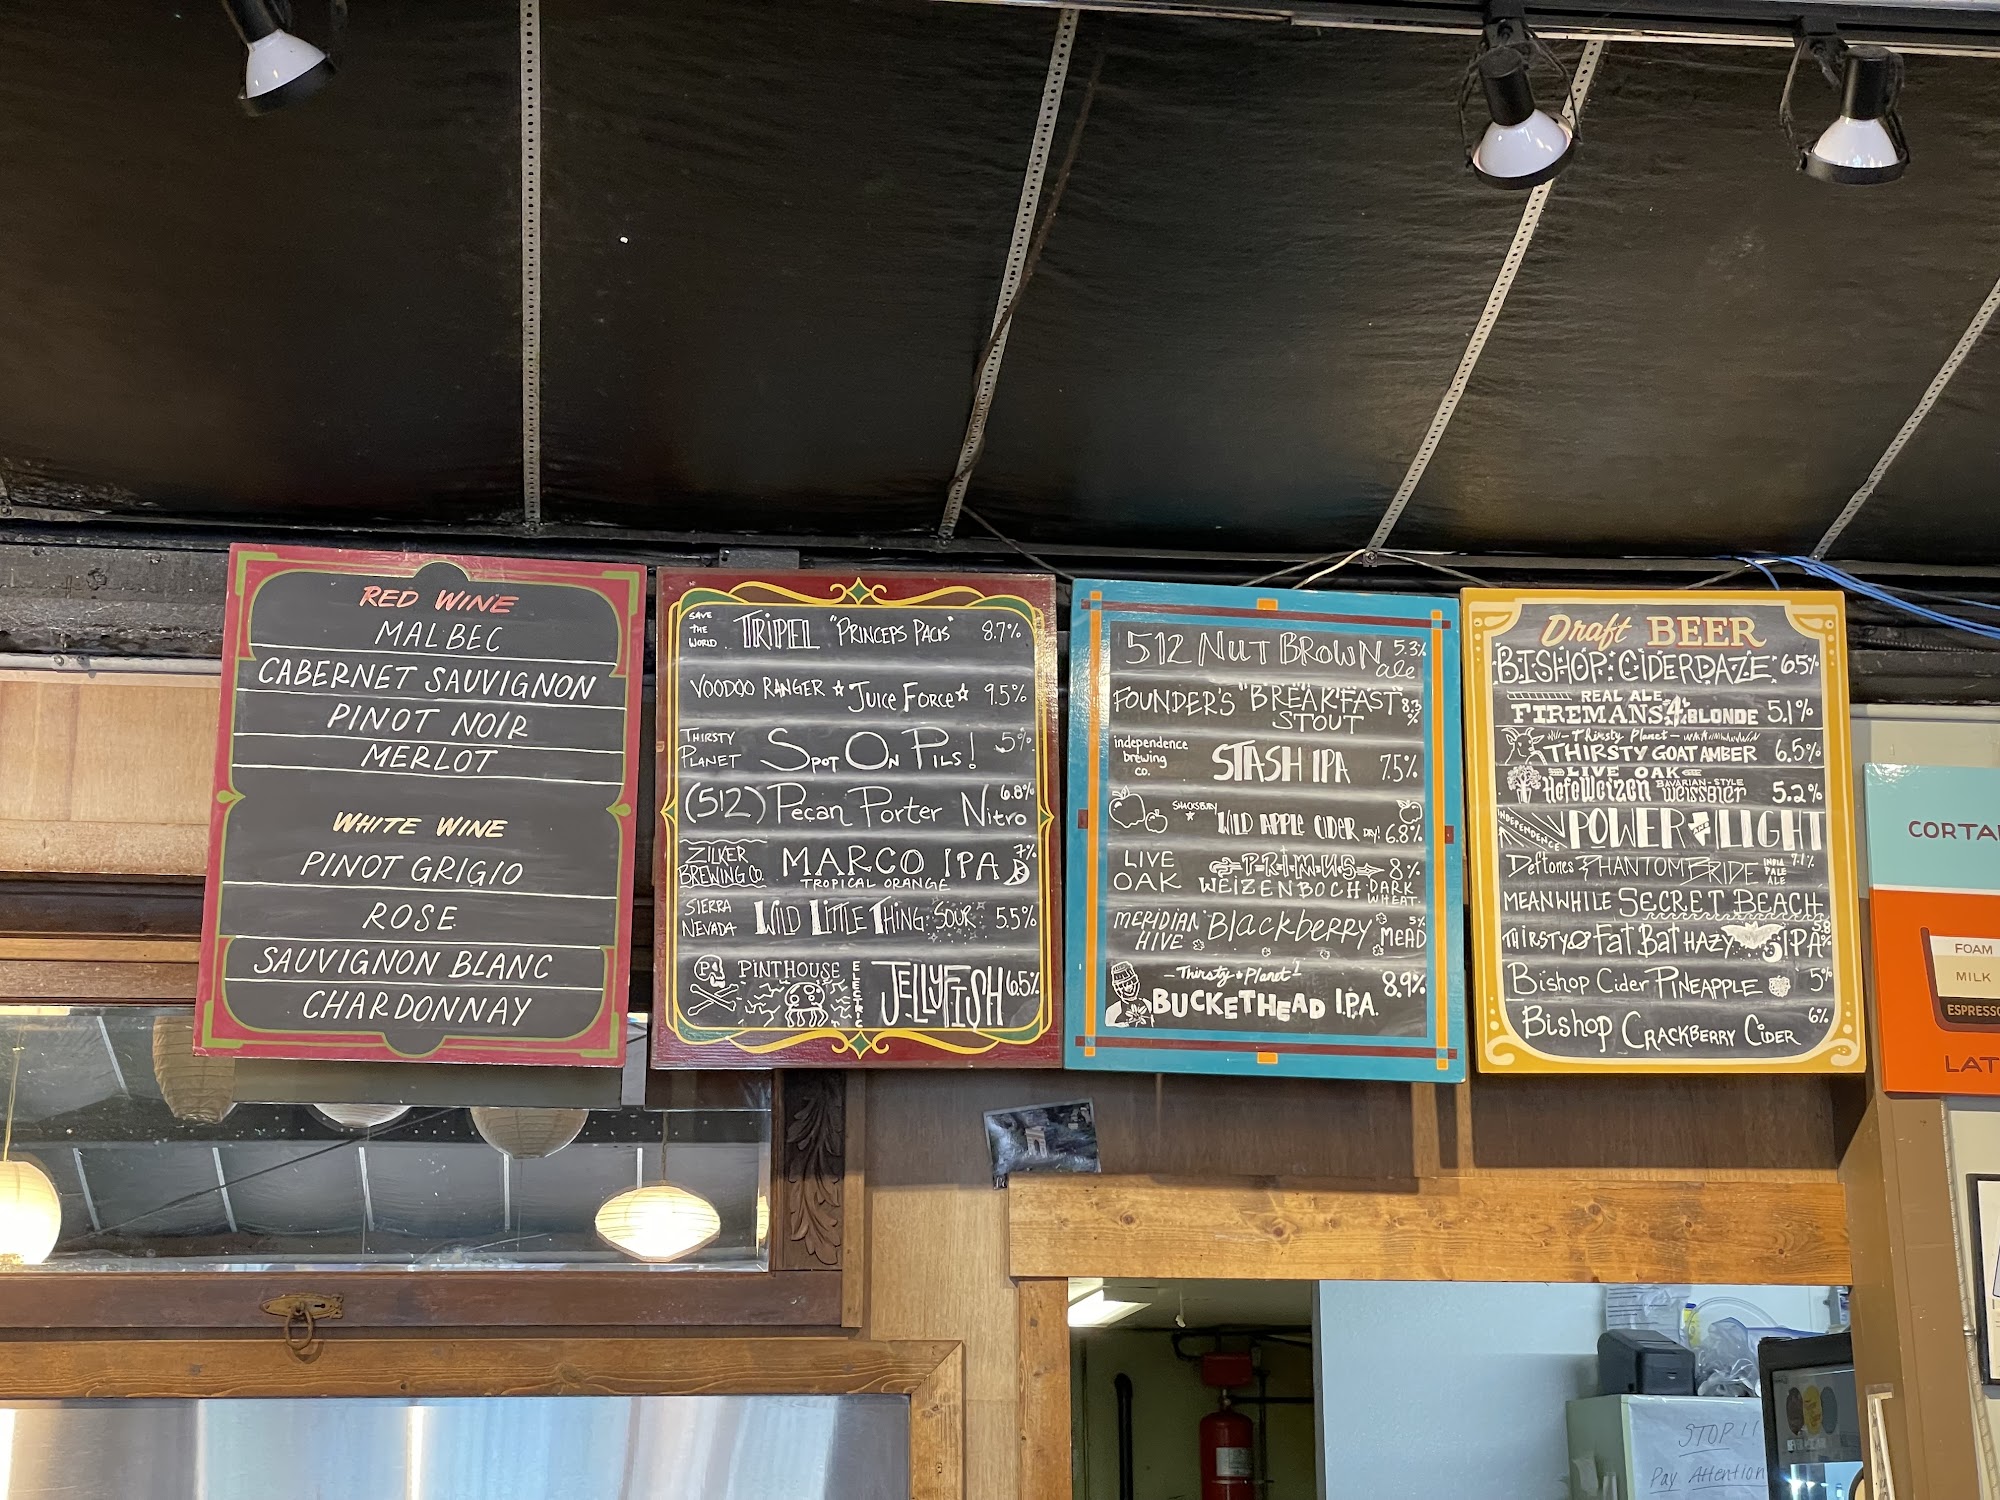 RED WINE
MALBEC
CABERNET SAUVIGNON
PINOT NOIR
MERLOT
WHITE WINE
PINOT GRIGIO
ROSE
SAUVIGNON BLANC
CHARDONNAY
SAVE THE WORLD TRIPEL "PRINCEPS PACIS" 8.7%
VOODOO RANGER JUICE FORCE 9.5%
THIRSTY PLANET SPOT ON PILS! 5%
(512) PECAN PORTER NITRO 6.8%
ZILKER BREWING CO. MARCO IPA 7%
TROPICAL ORANGE
SIERRA NEVADA WILD LITTLE THING SOUR 5.5%
PINTHOUSE ELECTRIC JELLYFISH 6.5%
512 NUT BROWN ale 5.3%
FOUNDER'S "BREAKFAST" 8.3%
STOUT
independence brewing co. STASH IPA 7.5%
WILD APPLE CIDER DRY! 6.8%
LIVE OAK PRIMUS 8%
WEIZENBOCH DARK WHEAT.
MERIDIAN HIVE Blackberry MEAD 5%
Thirsty Planet
BUCKETHEAD IPA. 8.9%
Draft BEER
BISHOP CIDERDAZE 6.5%
REAL ALE
FIREMANS 4 BLONDE 5.1%
Thirsty Planet
THIRSTY GOAT AMBER 6.5%
LIVE OAK
HefeWeizen BAVARIAN-STYLE Weissbier 5.2%
INDEPENDENCE POWER AND LIGHT
Deftones PHANTOM BRIDE INDIA PALE ALE 7.1%
MEANWHILE SECRET BEACH
THIRSTY Fat Bat HAZY IPA 5.8%
Bishop Cider PINEAPPLE 5%
Bishop CRACKBERRY CIDER 6%
FOAM
MILK
STOP!!
Pay Attention